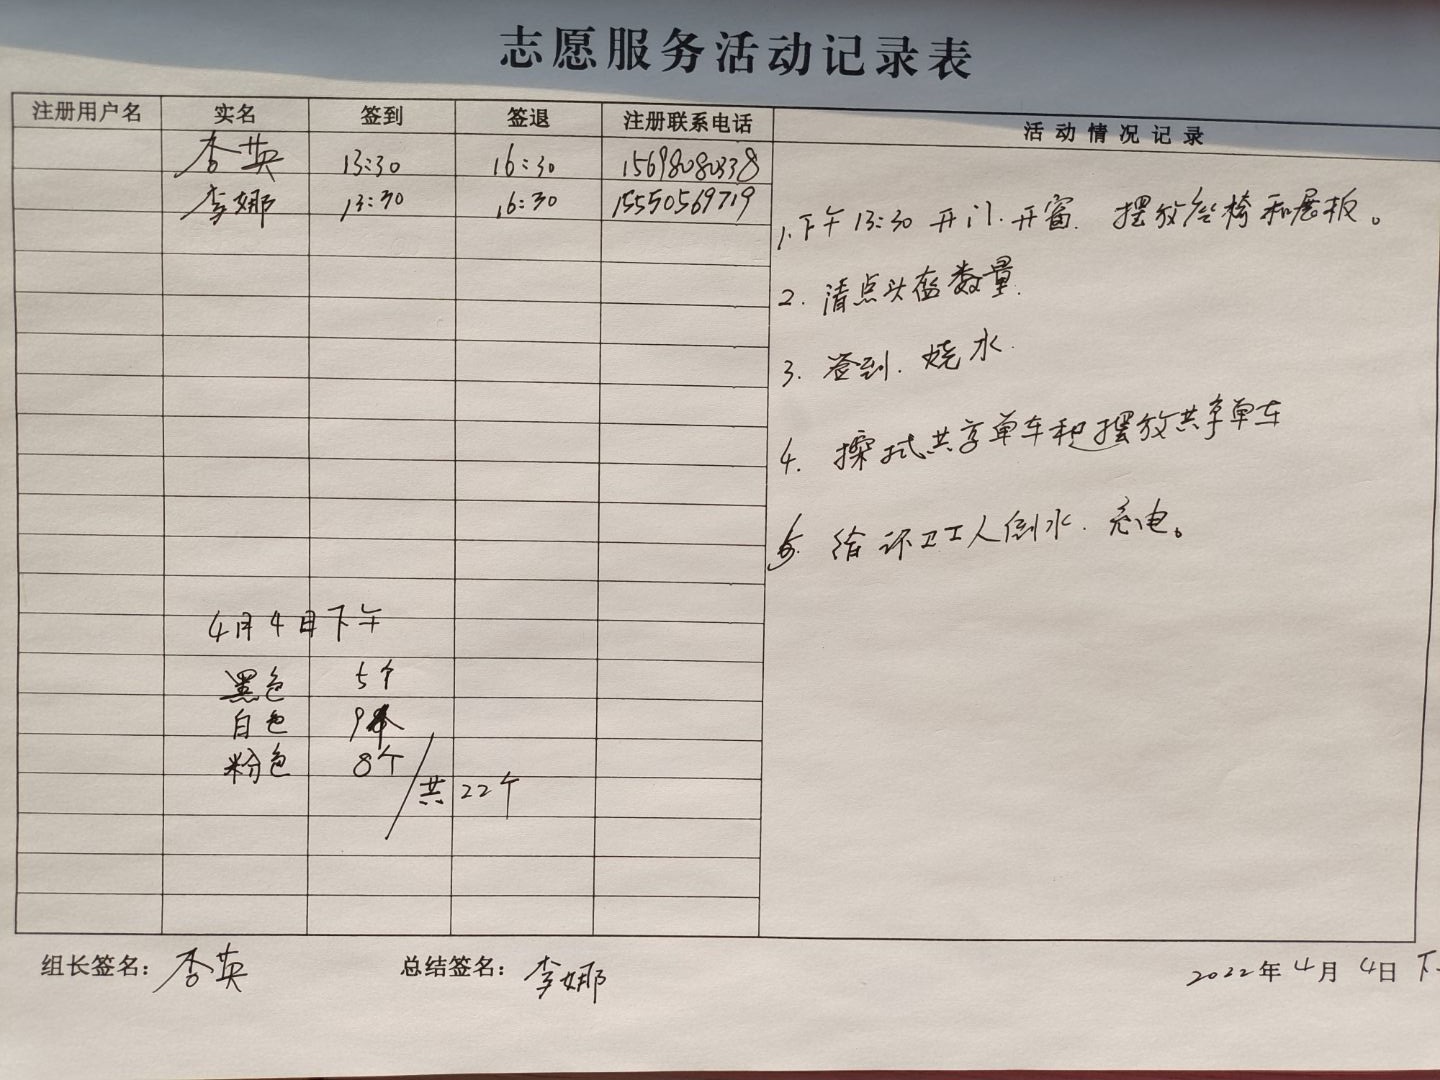 志愿服务活动记录表
注册用户名 实名 签到 签退 注册联系电话 活动情况记录
李英 13:30 16:30 15698080338
李娜 13:30 16:30 15550569719
1.下午13:30开门.开窗. 摆放台椅和展板。
2. 清点头盔数量.
3. 签到. 烧水.
4. 擦拭共享单车和摆放共享单车
5. 给环卫工人倒水. 充电。
4月4日下午
黑色 5个
白色 9个
粉色 8个
共22个
组长签名：李英 总结签名：李娜 2022年4月4日 下